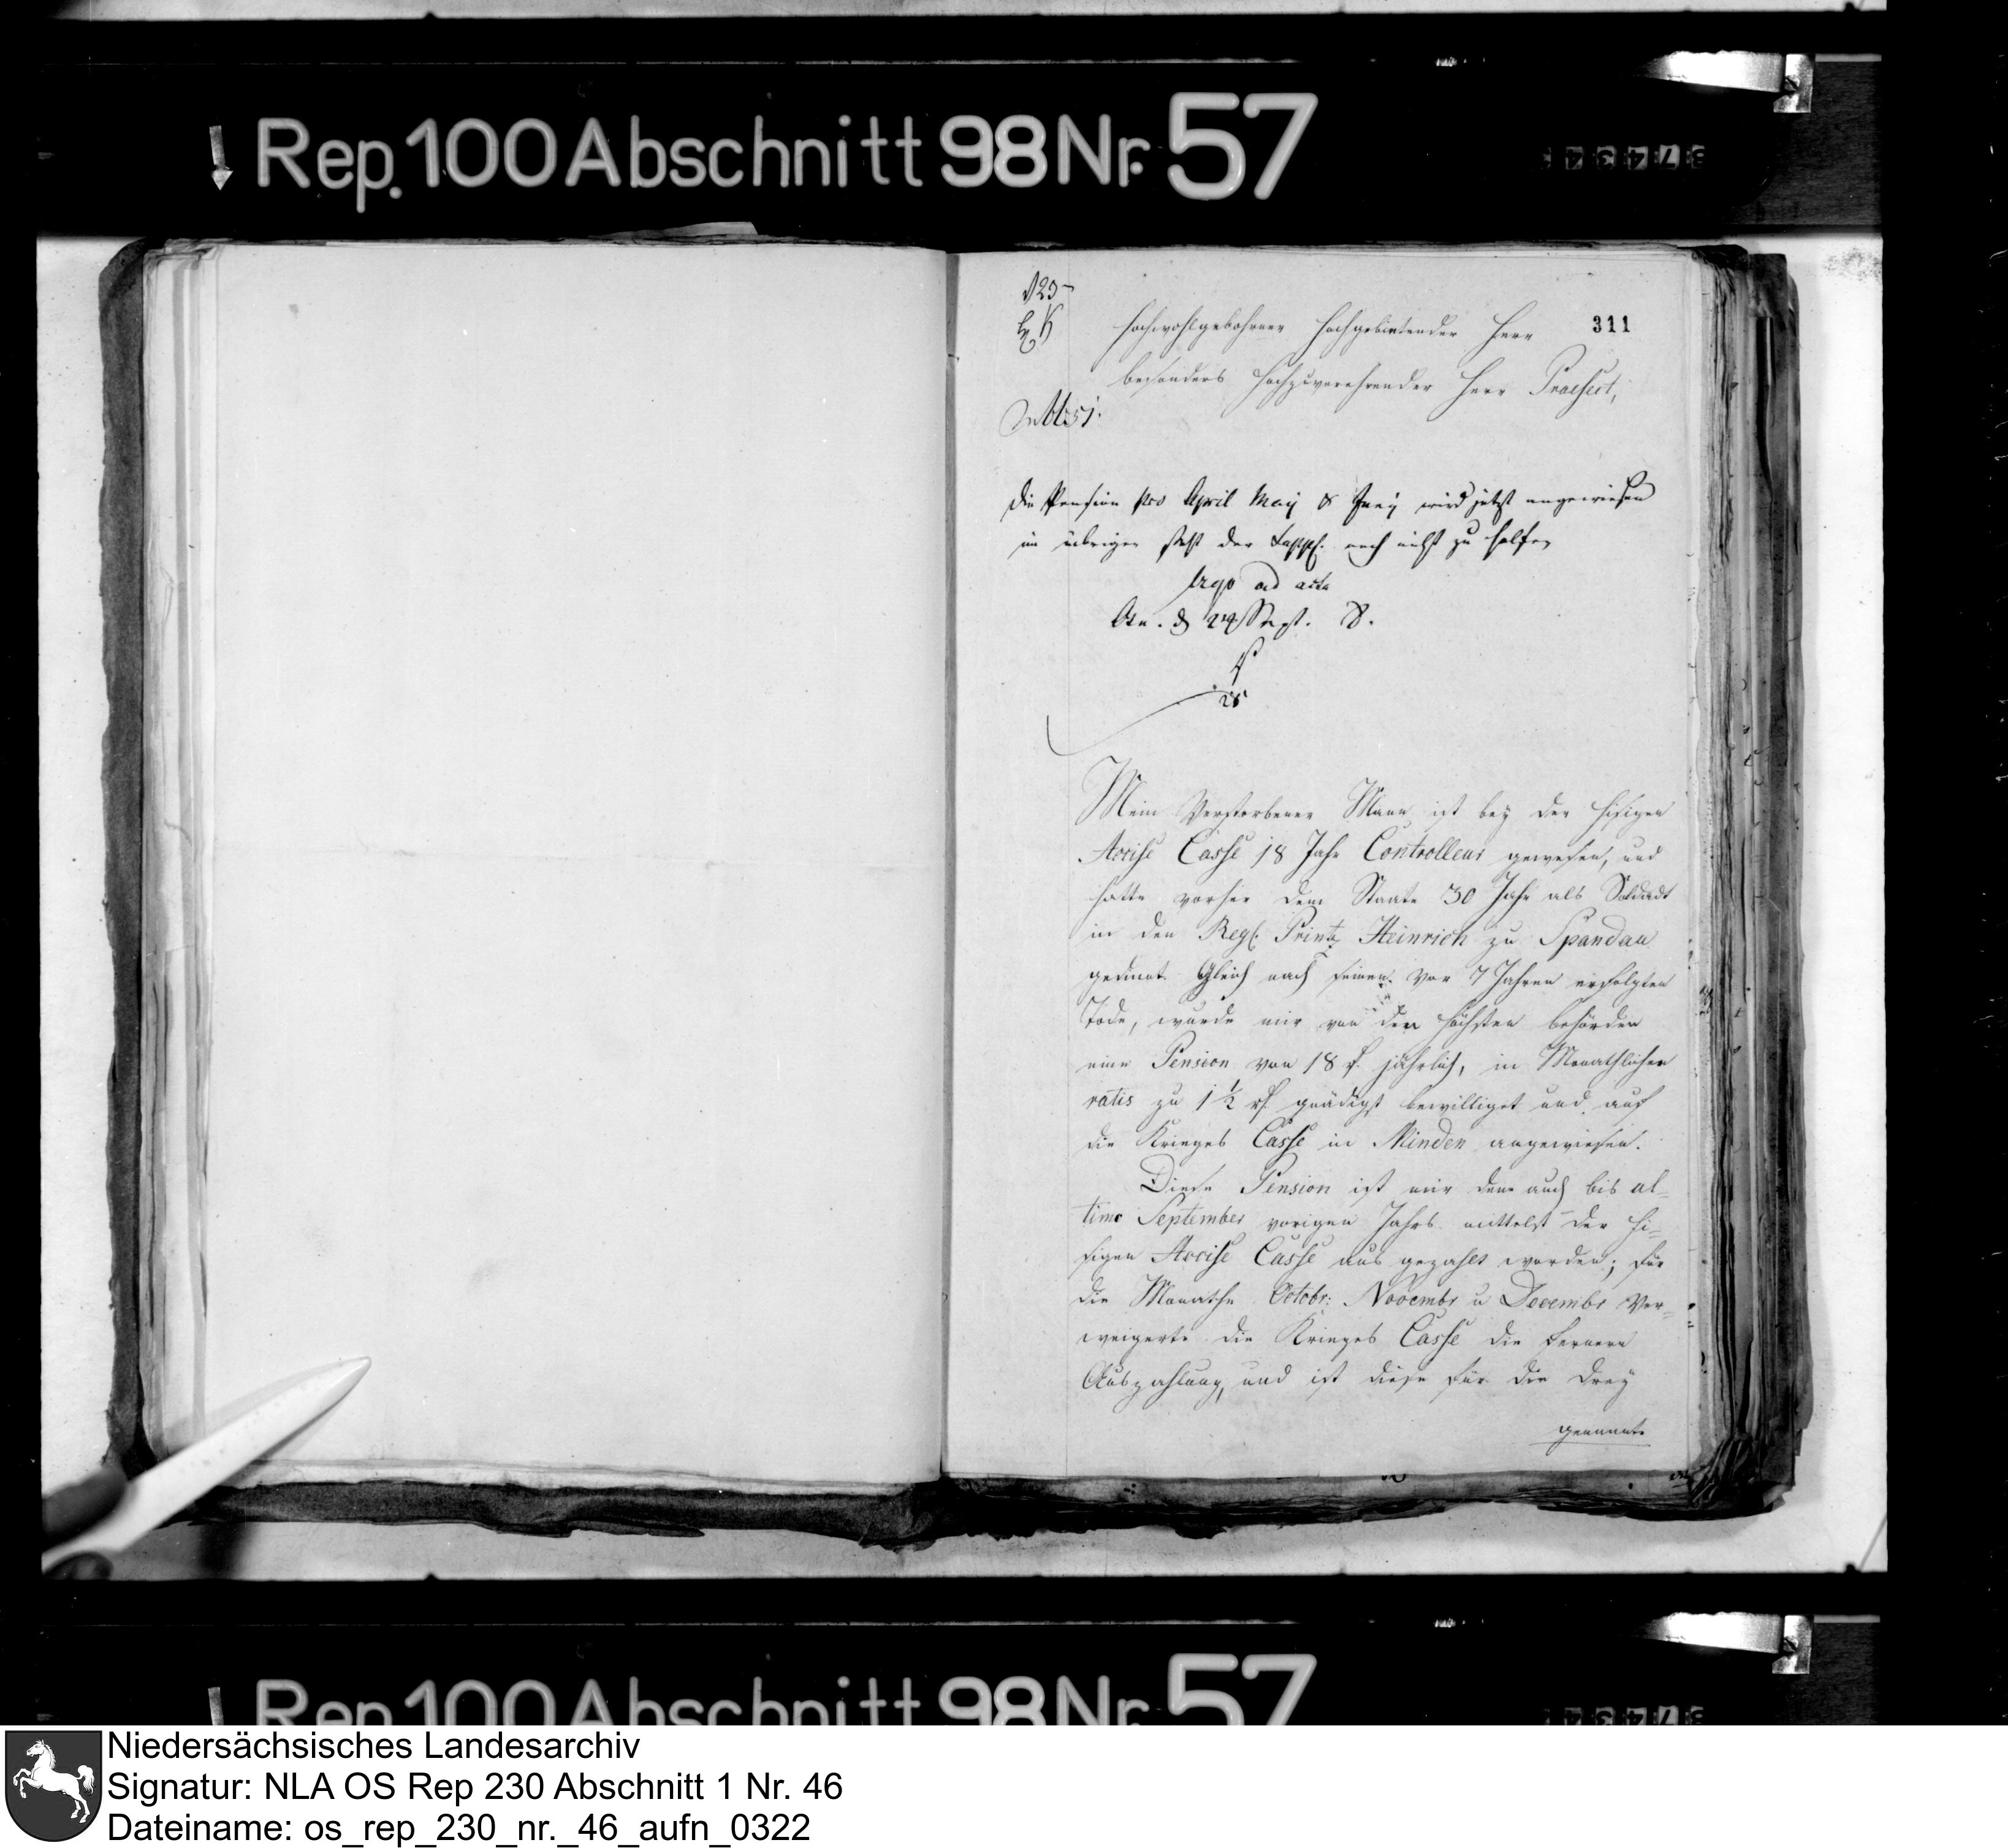 Rep. 100 Abschnitt 98 Nr. 57
311
Hochwohlgebohrner Hochgebietender Herr
besonders Hochzuverehrender Herr Praefect,
die Pension pro April May & Juny wird jetzt angewiesen
im übrigen steht der Suppl. noch nicht zu helfen
ergo ad acta
Osn. d 24 Sept. 8.
Mein Verstorbener Mann ist bey der hisigen
Accise Casse 18 Jahr Controlleur gewesen, und
hatte vorher dem Staate 30 Jahr als Soldadt
in den Regt. Printz Heinrich zu Spandau
gedient. Gleich nach seinen vor 7 Jahren erfolgten
Tode, wurde mir von den höchsten behörden
eine Pension von 18 rt. jährlich, in Monathlichen
ratis zu 1 1/2 rt. gnädigst bewilliget und auf
die Krieges Casse in Minden angewiesen.
Diese Pension ist mir denn auch bis ul-
timo September vorigen Jahrs mittelst der hi-
sigen Accise Casse aus gezahlt worden; für
die Monathe Octobr: Novembr u Decembr Ver-
weigerte die Krieges Casse die fernere
Auszahlung, und ist diese für die drey
genannte
Rep. 100 Abschnitt 98 Nr. 57
Niedersächsisches Landesarchiv
Signatur: NLA OS Rep 230 Abschnitt 1 Nr. 46
Dateiname: os_rep_230_nr._46_aufn_0322